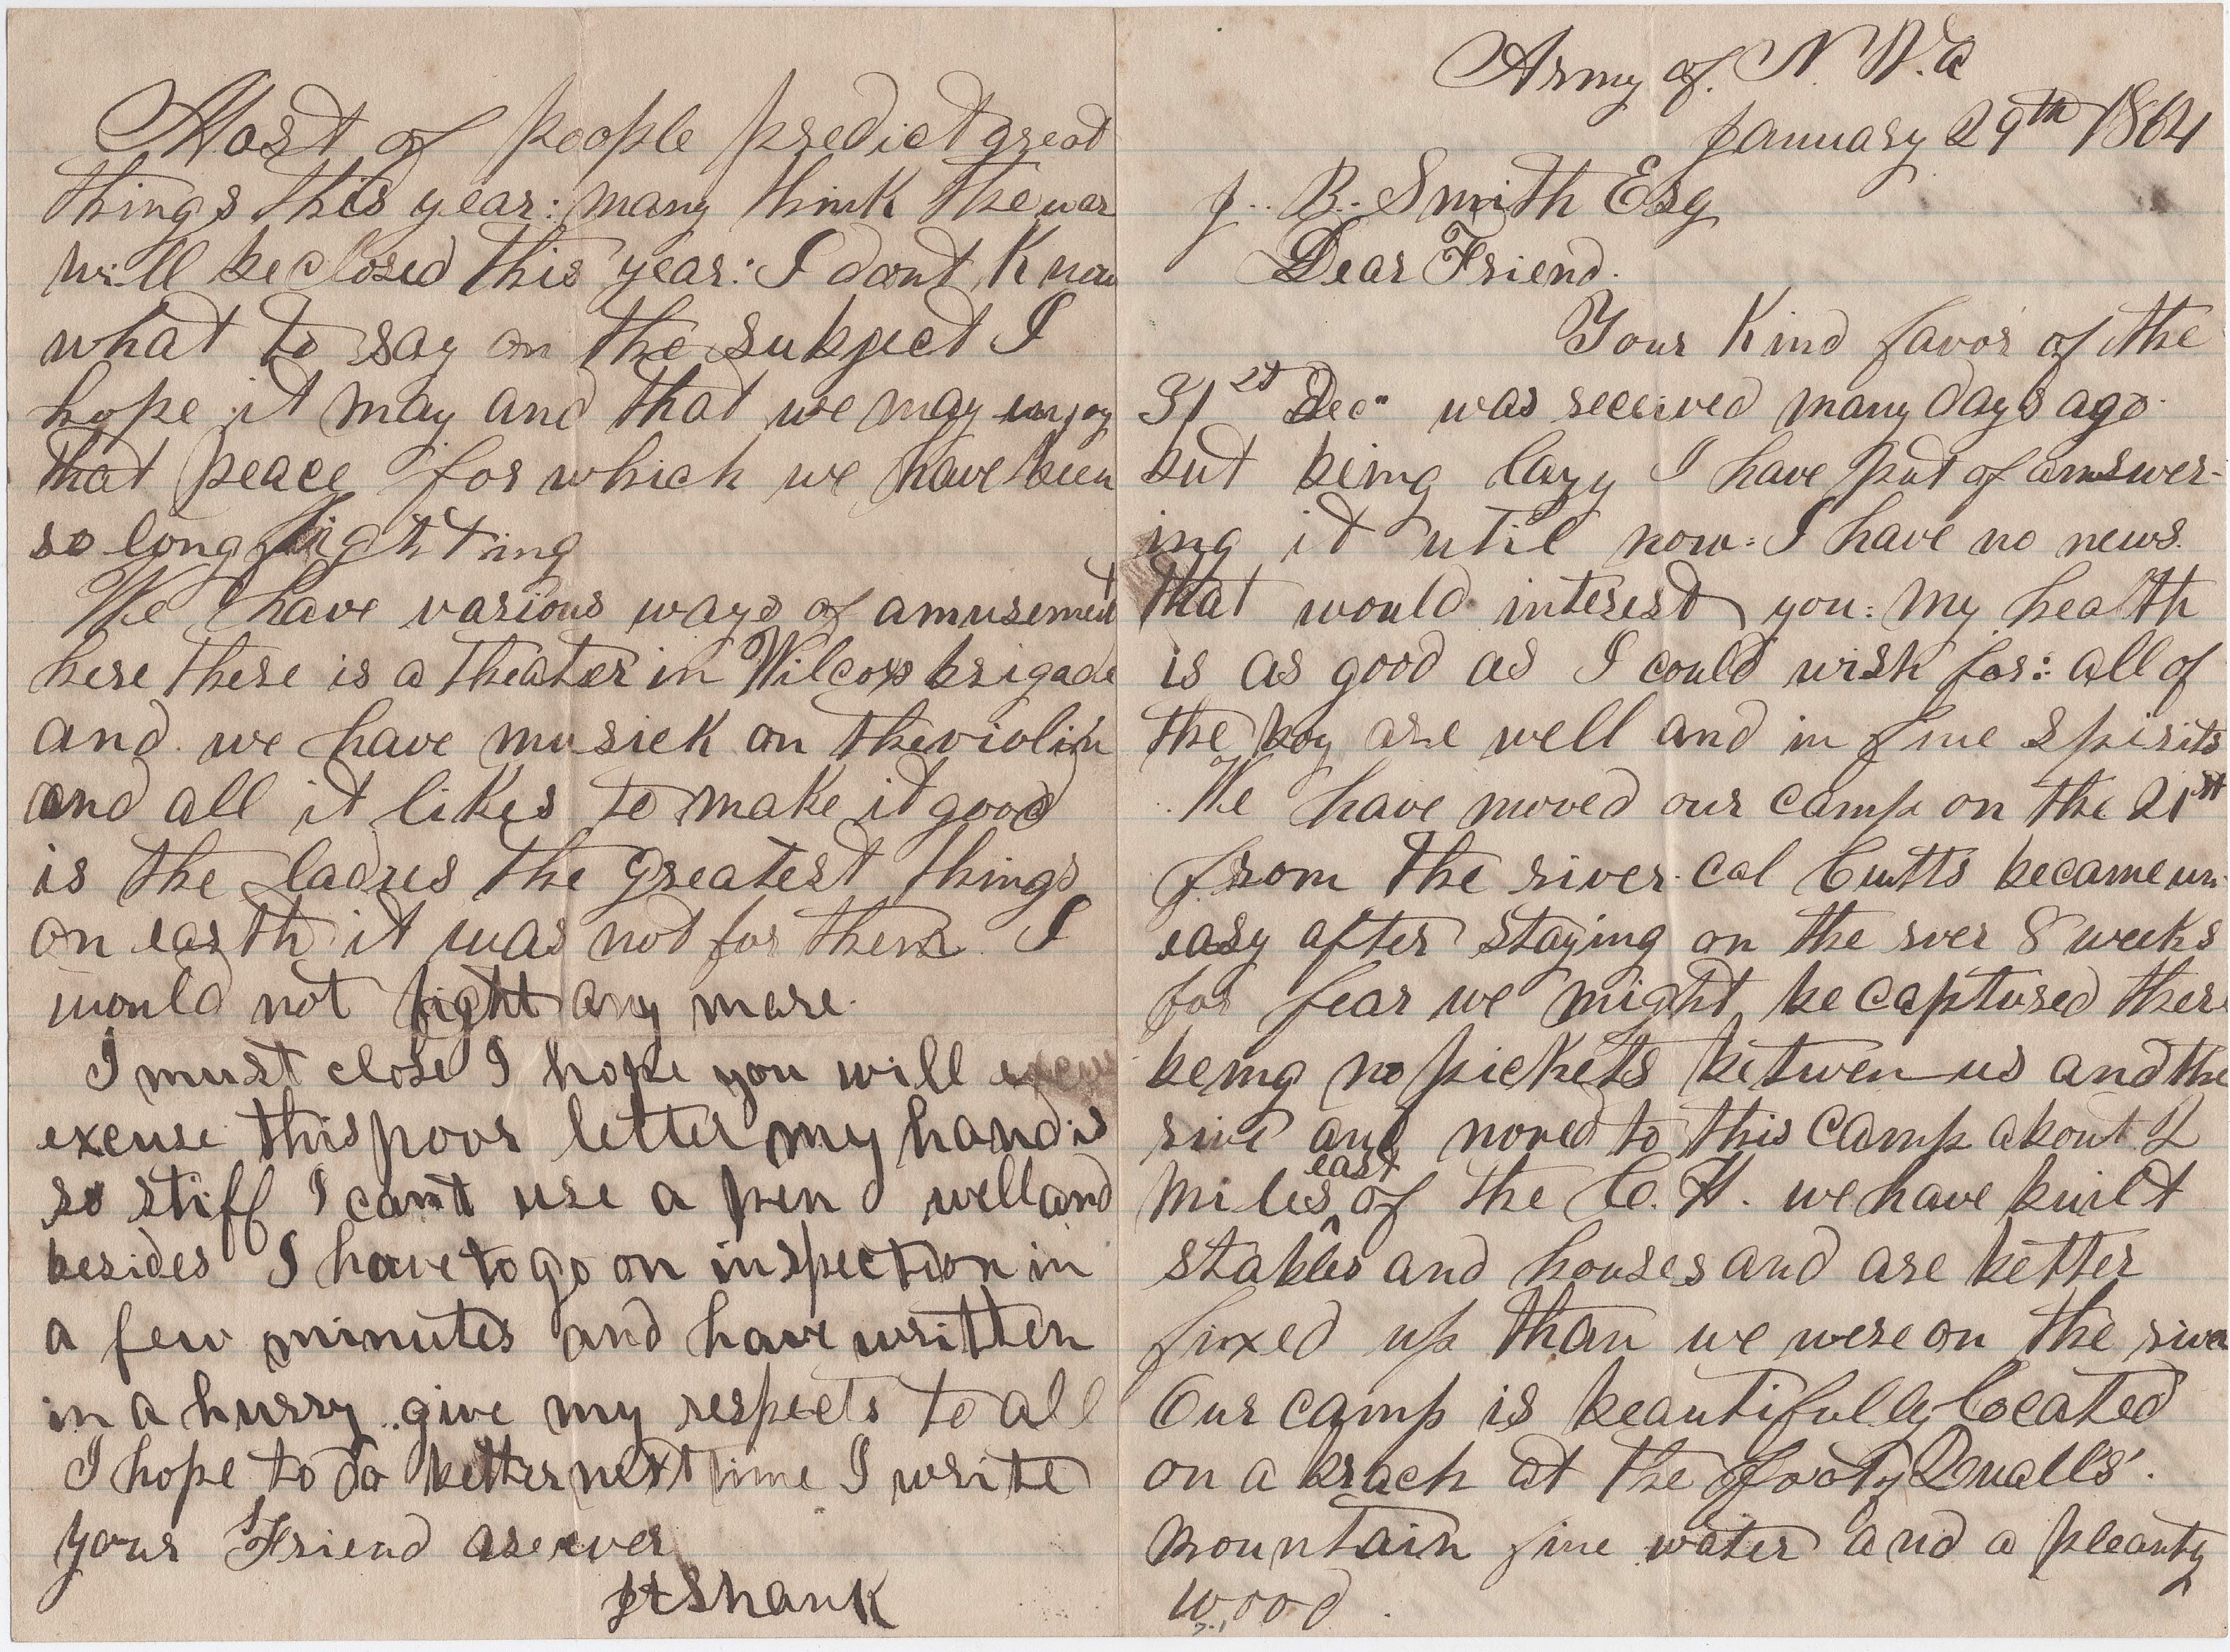 Army of. N. V.a
January 29th 1864
J.. B.. Smith Esq
Dear Friend.
Your Kind favor of the
31st Dec" was received many days ago
but being lazy I have put of answer-
ing it util now: I have no news.
that would interest you: my health
is as good as I could wish for: all of
the boy are well and in fine spirits
We have moved our camp on the 21st
from the river. Col Cutts became un-
easy after staying on the rver 8 weeks
for fear we might be captured there
being no pickets betwen us and the
rive and moved to this camp about 2
miles east of the C. H. we have built
stables and houses and are better
fixed up than we were on the river
Our camp is beautifully located
on a brach at the foot of Qualls'.
mountain fine water and a pleanty
wood.
Most of people predict great
things this year: many think the war
will be closed this year: I dont Know
what to say on the subject I
hope it may and that we may enjoy
that peace for which we have been
so long fighting
We have various ways of amusement
here there is a theater in Wilcoxs brigade
and we have musick on the violin
and all it likes to make it good
is the ladies the greatest things
on earth it was not for them I
would not fight any more.
I must close I hope you will
excuse this poor letter my hand is
so stiff I cant use a pen well and
besides I have to go on inspection in
a few minutes and have written
in a hurry.. give my respects to all
I hope to do better next time I write
your Friend as ever
Shank